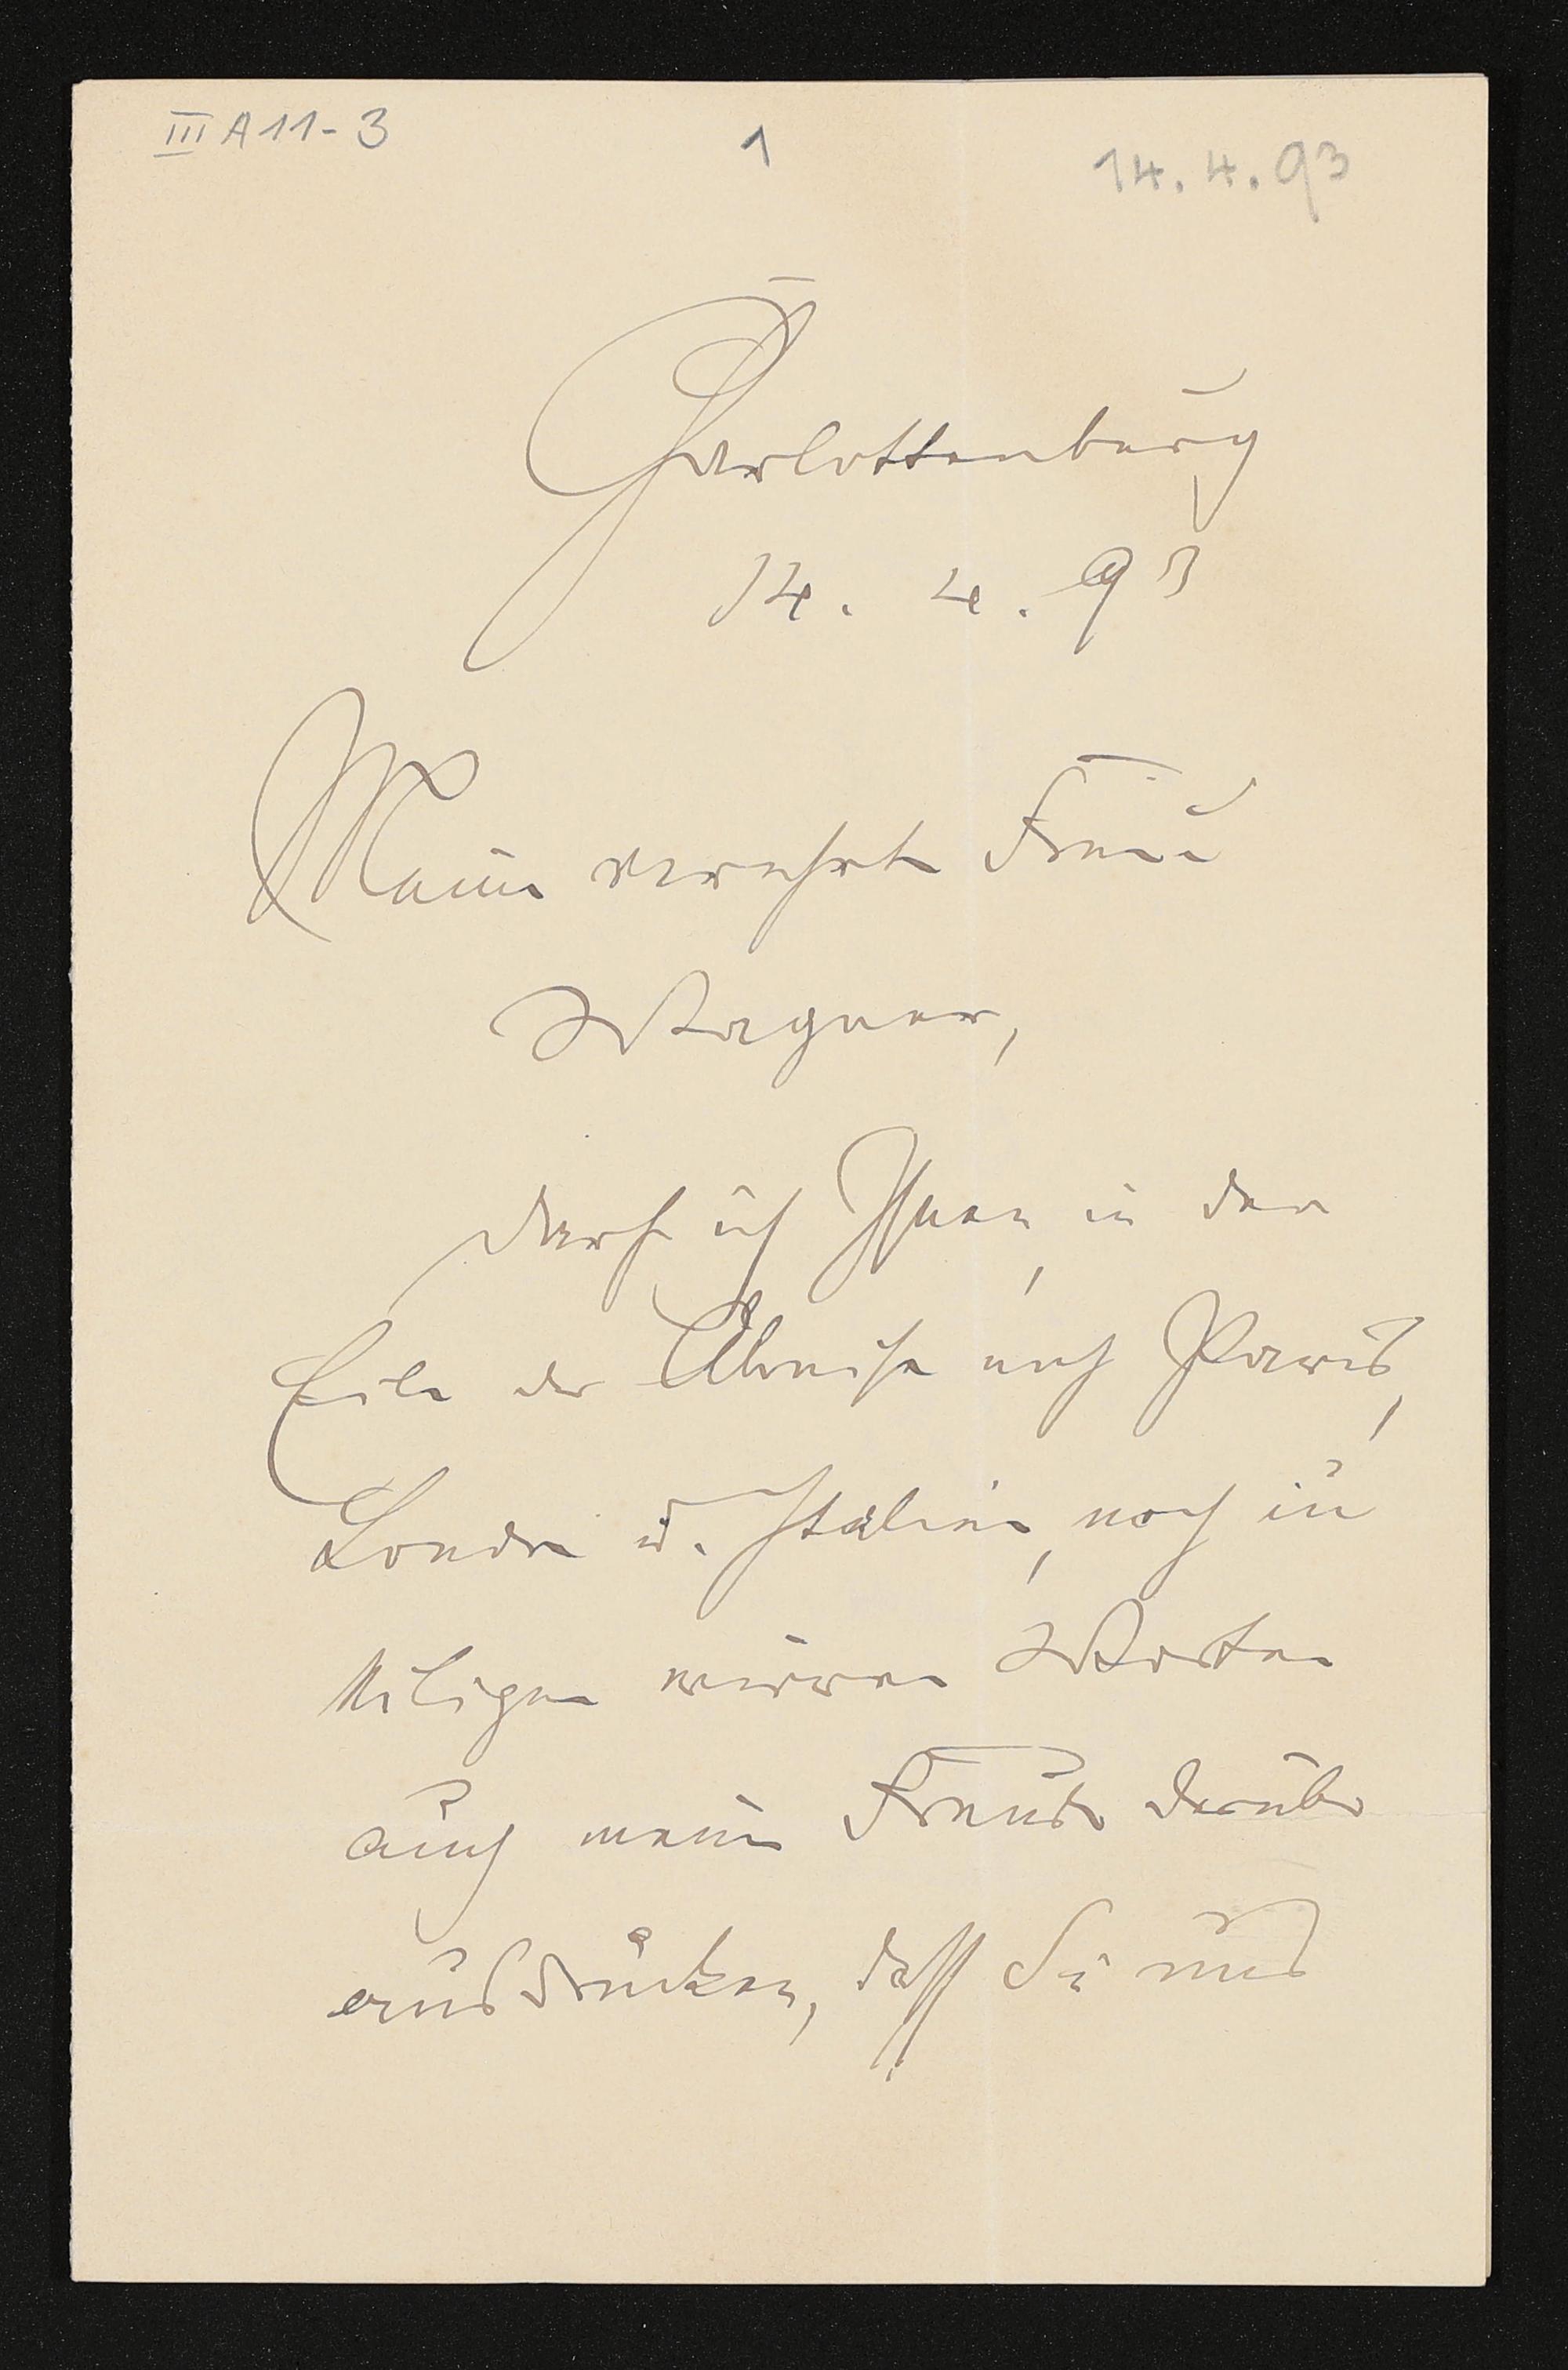 III A 11-3
1
14. 4. 93
Charlottenburg
14. 4. 93
Meine verehrte Frau
Wagner,
darf ich Ihnen, in der
Eile der Abreise nach Paris,
London u. Italien, noch in
eiligen wirren Worten
auch meine Freude darüber
ausdrücken, dass Sie uns